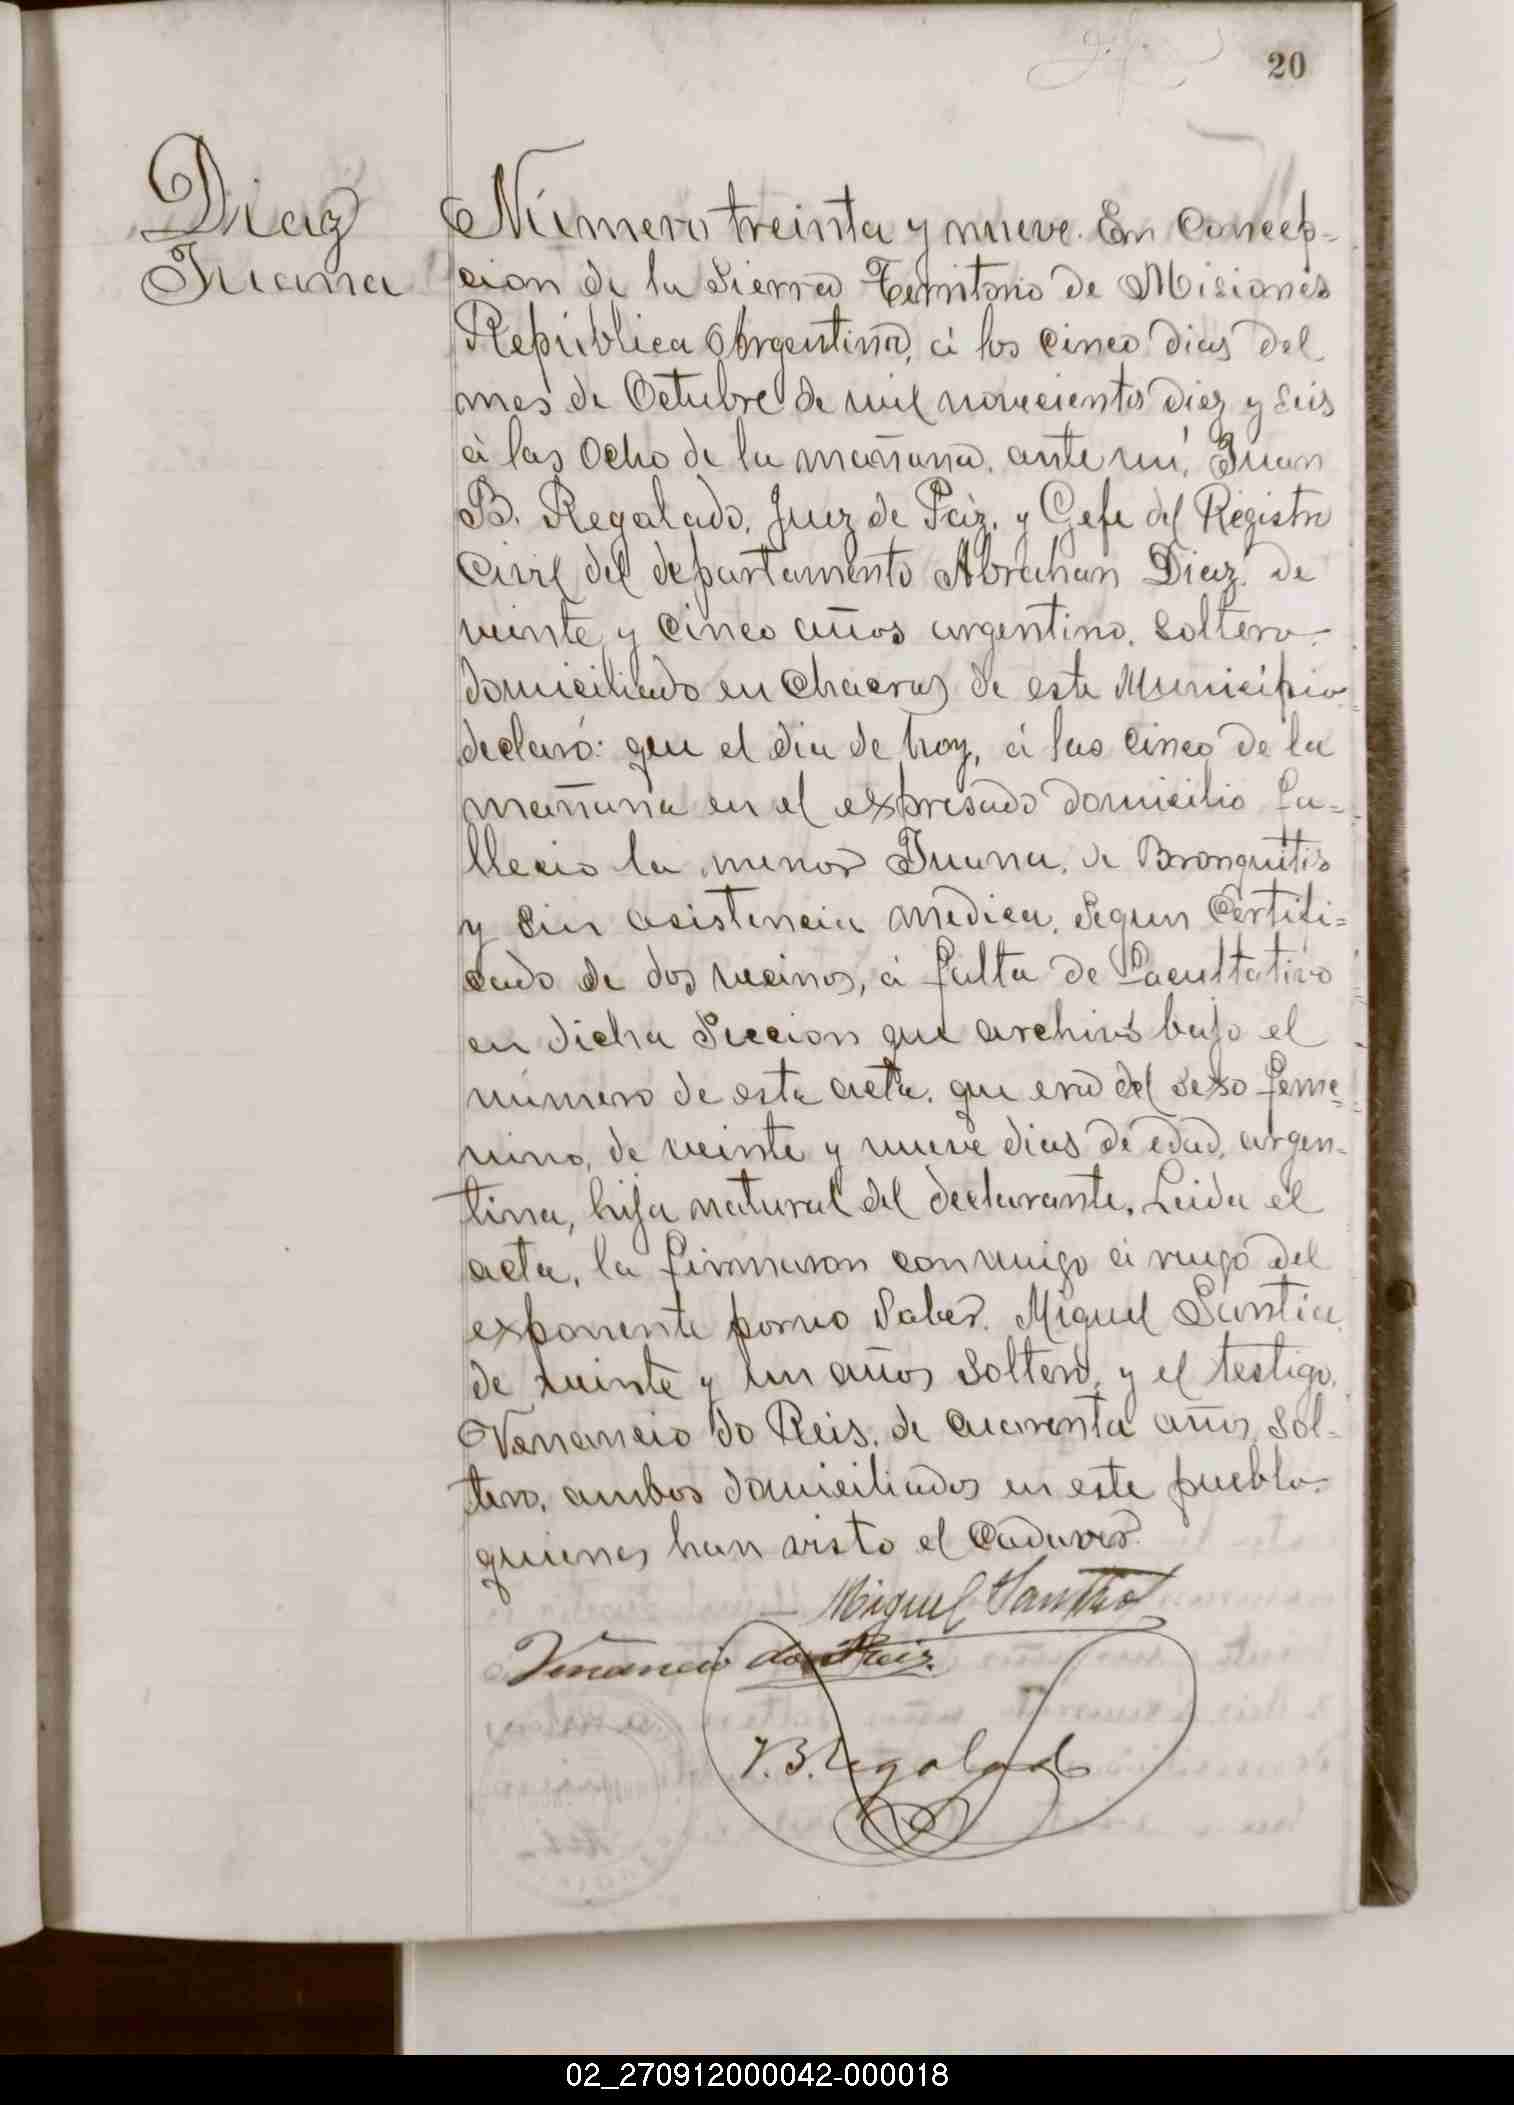 20
Diaz
Juana
Número treinta y nueve. En Concep-
cion de la Sierra Territorio de Misiones
República Argentina, á los cinco dias del
mes de Octubre de mil novecientos diez y seis
á las ocho de la mañana, ante mí, Juan
B. Regalado, Juez de Páz, y Gefe del Registro
Civil del departamento Abrahan Diaz, de
veinte y cinco años argentino, soltero.
domiciliado en Chacras de este Municipio
declaró: que el dia de hoy, á las cinco de la
mañana en el expresado domicilio fa-
llecio la menor Juana, de Bronquitis
y sin asistencia medica, segun Certifi-
cado de dos vecinos, á falta de facultativo
en dicha Seccion que archivo bajo el
número de esta acta, que era del sexo feme-
nino, de veinte y nueve dias de edad, argen-
tina, hija natural del declarante. Leida el
acta, la firmaron conmigo á ruego del
exponente porno saber. Miguel Santia
de veinte y un años soltero, y el testigo,
Venancio do Reis, de cuarenta años, sol-
tero, ambos domiciliados en este pueblo.
quienes han visto el Cadaver.
Miguel
Venancio dos Reiz.
J. B. Regalado
02_270912000042-000018